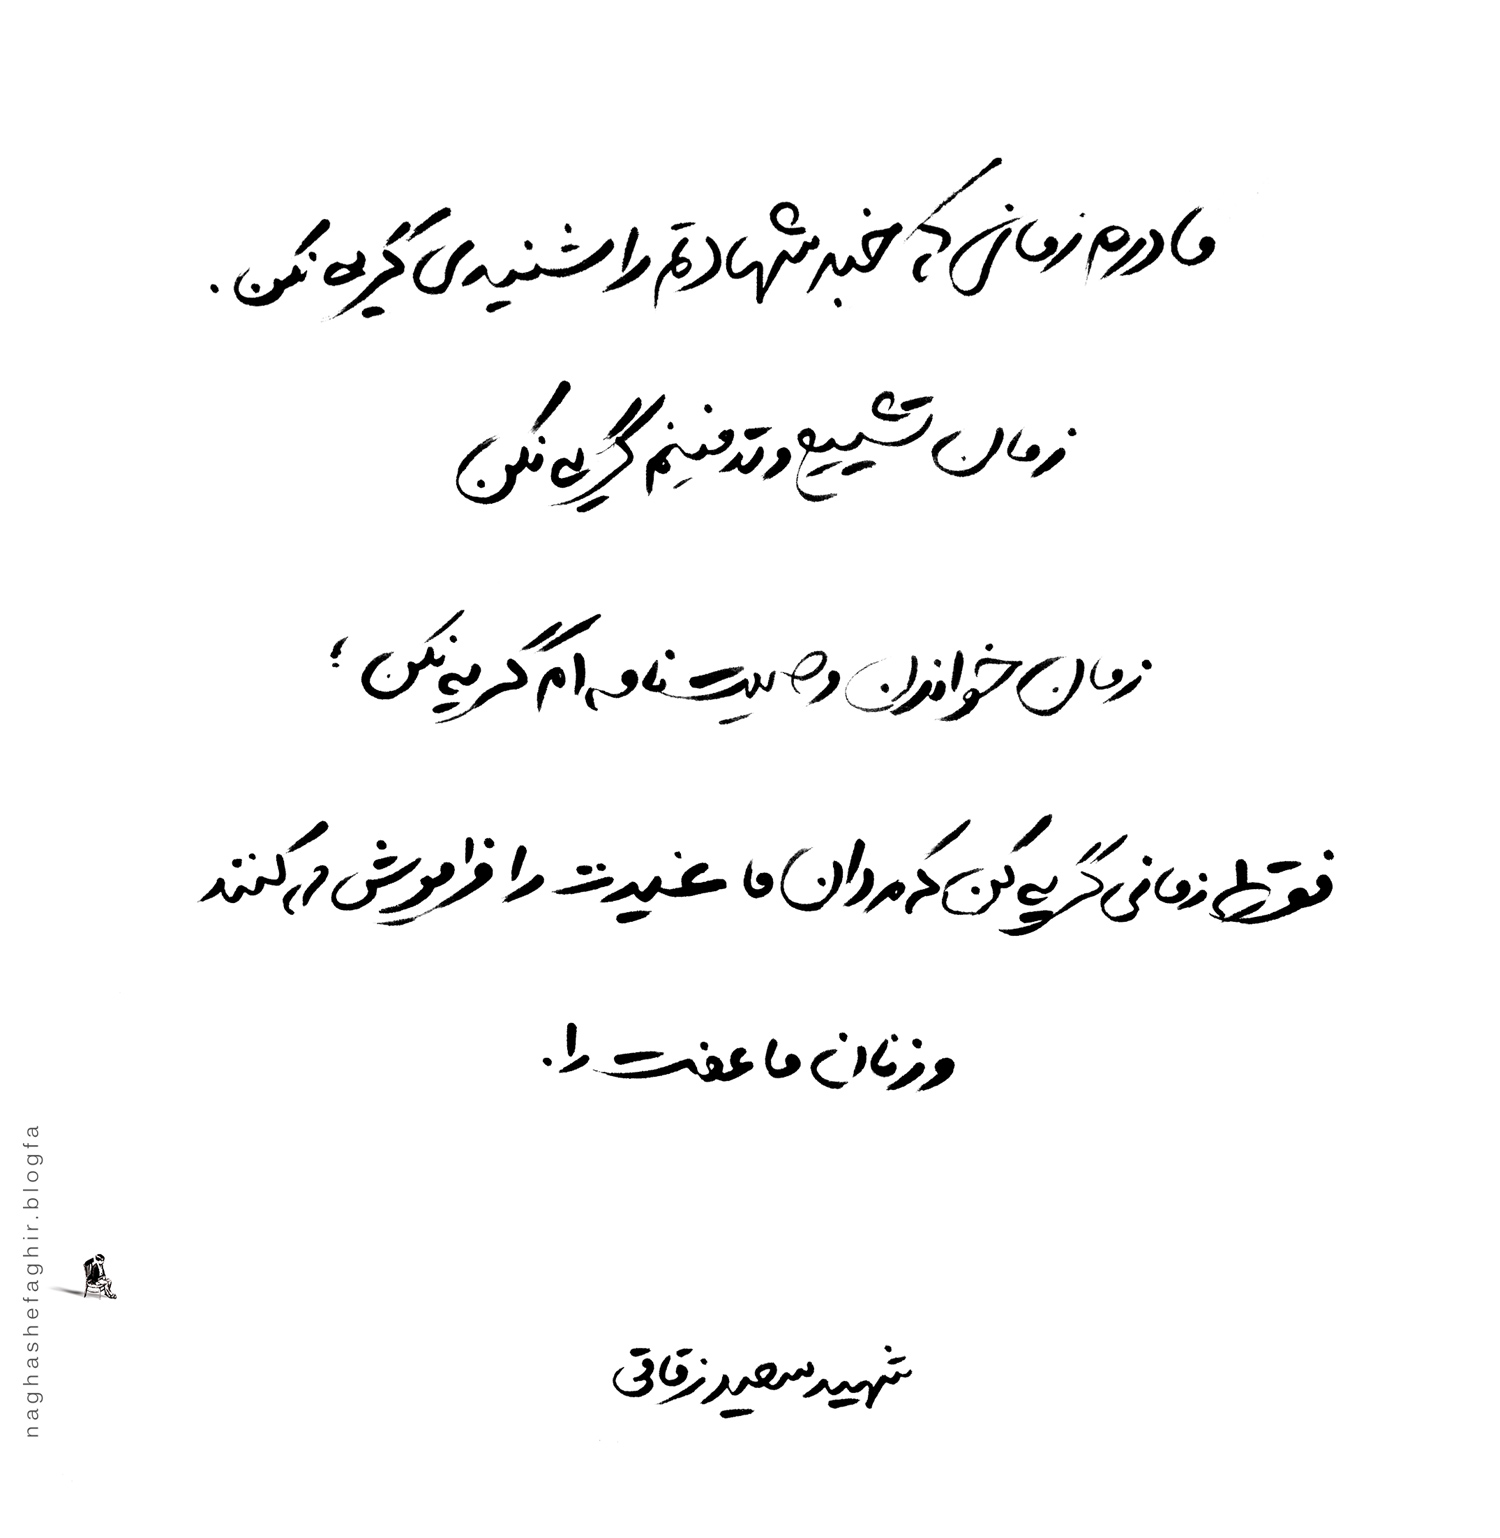 مادرم زمانی که خبر شهادتم را شنیدی گریه نکن .
زمان تشییع و تدفینم گریه نکن
زمان خواندن وصیت نامه ام گریه نکن ؛
فقط زمانی گریه کن که مردان ما غیرت را فراموش می کنند
و زنان ما عفت را .
شهید سعید زقاقی
naghashefaghir.blogfa